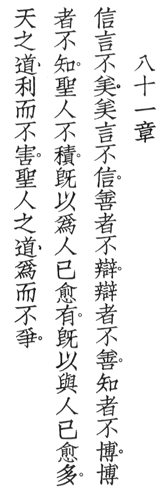 八十一章
信言不矣。矣言不信。善者不辯。辯者不善知者不博。博
者不知。聖人不積。旣以爲人已愈有。旣以與人已愈多。
天之道、利而不害。聖人之道、爲而不爭。